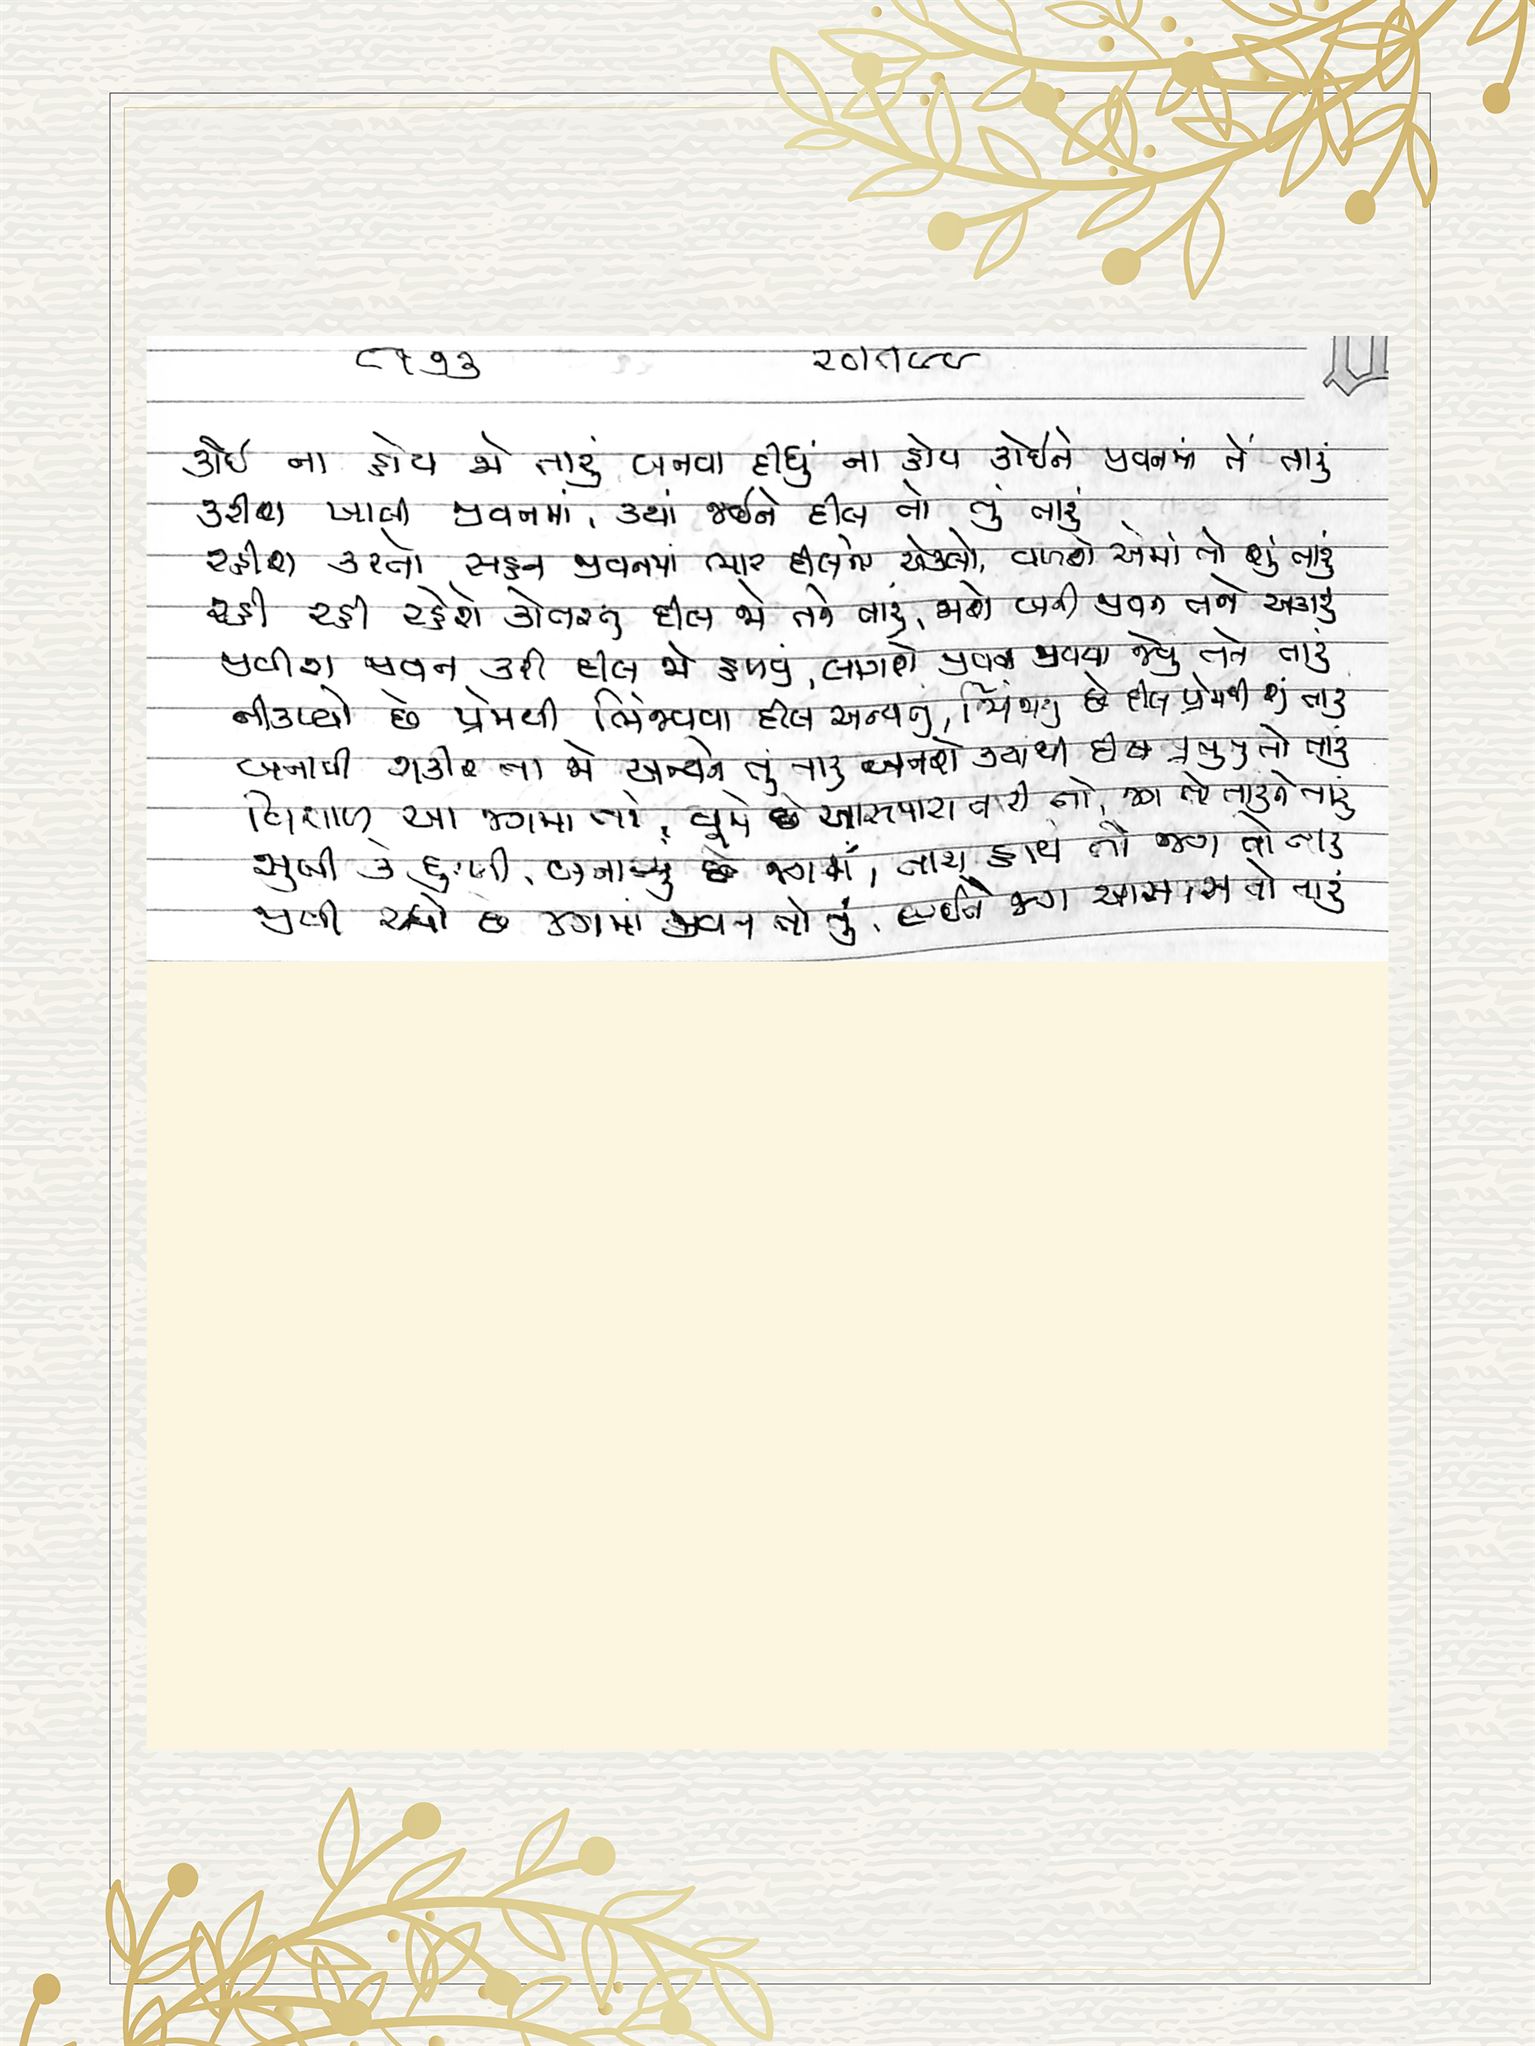 ૮૫૧૩ ૨૦।૧।૯૯
કોઈ ના હોય જો તારું બનવા દીધું ના હોય કોઈને જીવનમાં તેં તારું
કરીશ ખાલી જીવનમાં, ક્યાં જઈને દીલ તો તું તારું
રહીશ કરતો સહન જીવનમાં ભાર દીલને એકલો, વળશે એમાં તો શું તારું
રહી રહી રહેશે કોતરતું દીલ જો તને તારું, જાશે બની જીવન તને અકારું
જીવીશ જીવન કરી દીલ જો હળવું, લાગશે જીવન જીવવા જેવું તને તારું
નીકળ્યો છે પ્રેમથી ભિંજવવા દીલ અન્યનું, ભિંજાયું છે દીલ પ્રેમથી શું તારું
બનાવી શકીશ ના જો અન્યને તું તારું બનશે ક્યાંથી દીલ પ્રભુનું તો તારું
વિશાળ આ જગમાં તો, ઘૂમે છે આસપાસ તારી તો, જગ તો તારું ને તારું
સુખી કે દુઃખી, બનાવ્યું છે જગમાં, તારા હાથે તો જગ તો તારું
જીવી રહ્યો છે જગમાં જીવન તો તું, લઈને જગ આસપાસ તો તારું